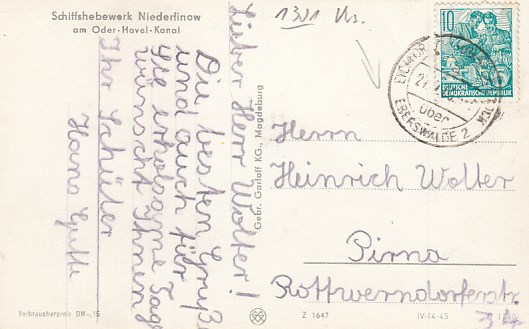 Schiffshebewerk Niederfinow
am Oder-Havel-Kanal
Lieber Herr Wolter!
Die besten Grüße
und auch für
Sie erholsame Tage
wünscht Ihnen
Ihr Schüler
Hans
Gebr. Garloff KG., Magdeburg
10
DEUTSCHE
DEMOKRATISCHE REPUBLIK
über
EBERSWALDE 2
Herrn
Heinrich Wolter
Pirna
Rottwerndorferstr.
Verbraucherpreis DM -,15
Z 1647
IV-14-45